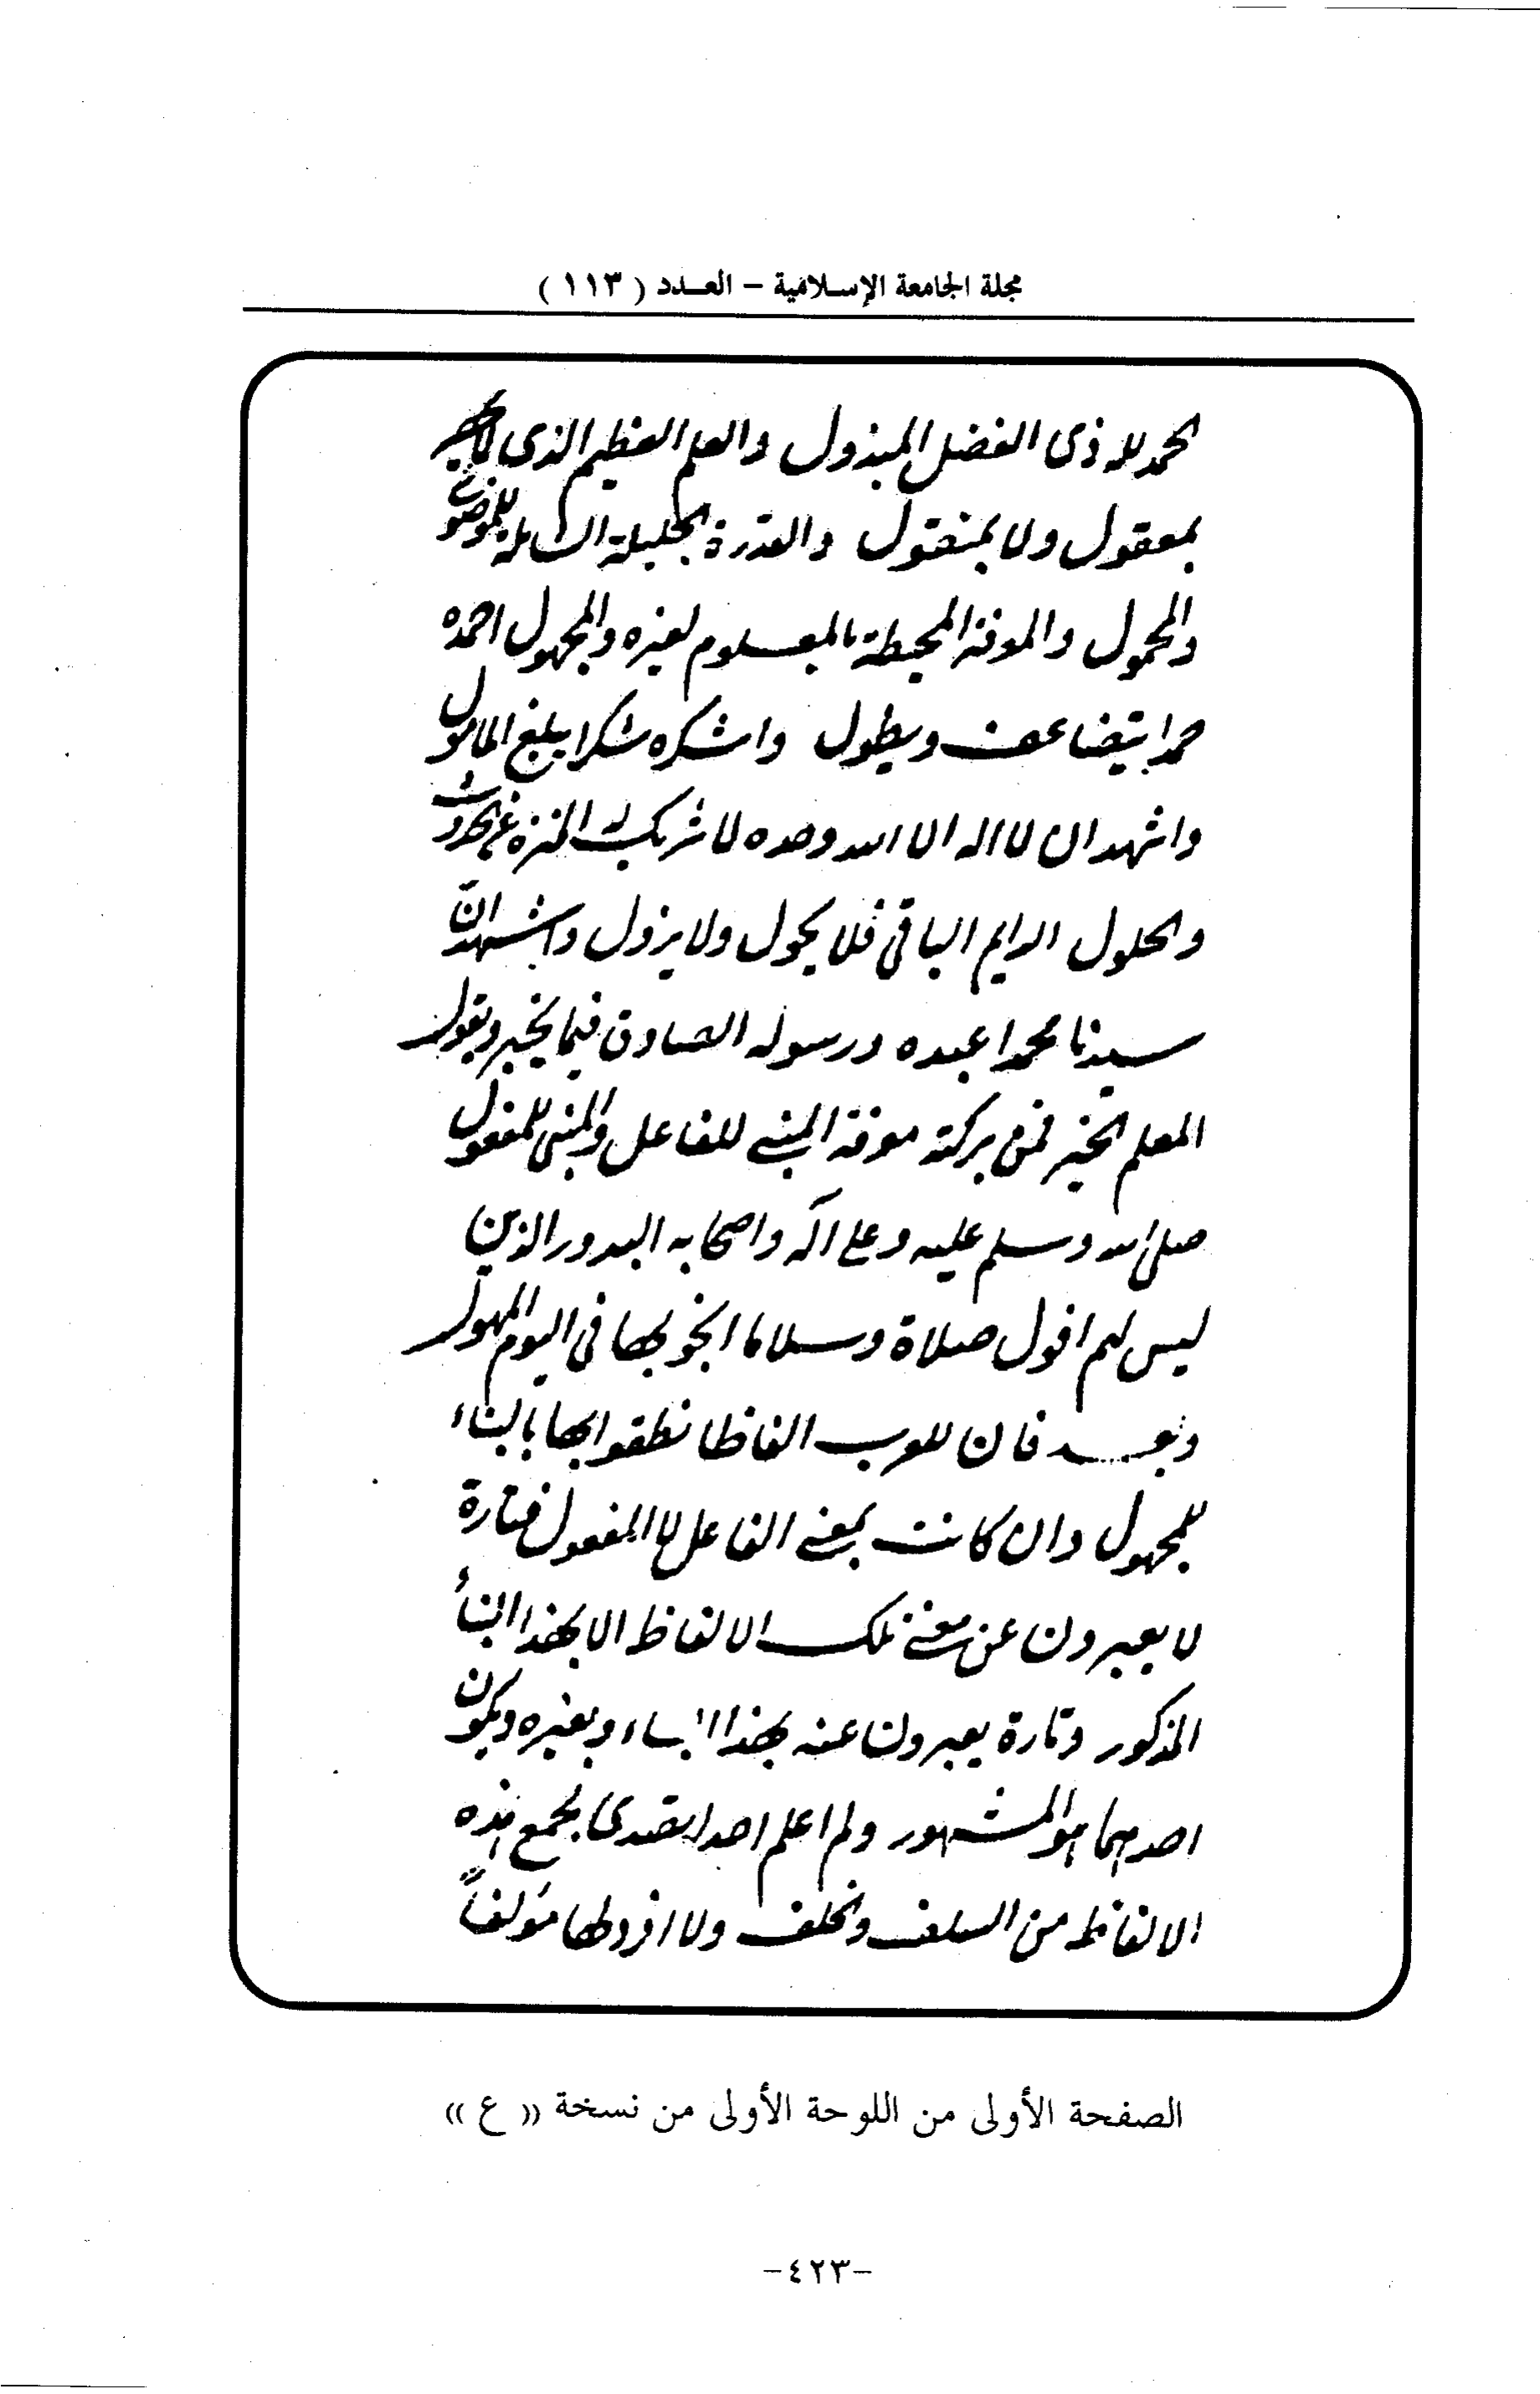 مجلة الجامعة الإسلامية – العدد (١١٣)
الحمد لله ذى الفضل المبذول والعلم العظيم الذى لا
بمعقول ولا بمنقول والقدرة الجليلة الشاملة للموضوع
والمحمول والمعرفة المحيطة بالمعلوم لغيره والمجهول احمده
حمدا يتضاعف ويطول واشكره شكرا يبلغ المامول
واشهد ان لا اله الا الله وحده لا شريك له المنزه عن الحدوث
والحلول الدايم الباقى فلا يحول ولا يزول واشهد انّ
سيدنا محمدا عبده ورسوله الصادق فيما يخبر ويقول
المعلم الخير فمن بركته معرفة المبنى للفاعل والمبنى للمفعول
صلى الله وسلم عليه وعلى آله واصحابه البدور الذين
ليس لهم افول صلاة وسلاما انجو بهما فى اليوم المهول
وبعد فان للعرب الفاظا نطقوا بها بالبناء
للمجهول وان كانت بمعنى الفاعل لا المفعول فتارة
لا يعبرون عن معنى تلك الالفاظ الا بهذا البناء
المذكور وتارة يعبرون عنه بهذا البناء وبغيره ويكون
احدهما هو المشهور ولم اعلم احدا تصدى لجمع هذه
الالفاظ من السلف والخلف ولا افرد لها مؤلفاً
الصفحة الأولى من اللوحة الأولى من نسخة (( ع ))
–٤٢٣–